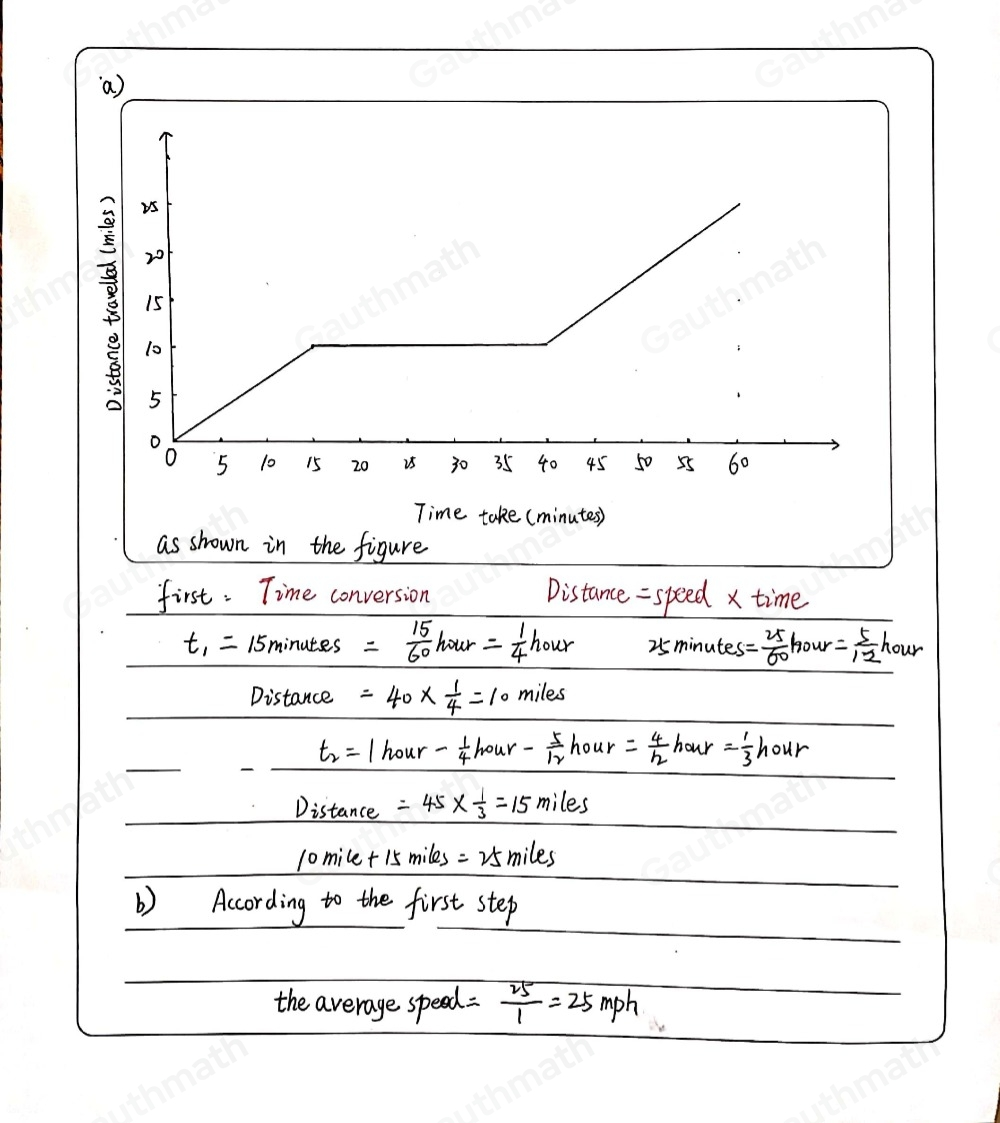 a)
Distance travelled (miles)
25
20
15
10
5
0
0 5 10 15 20 25 30 35 40 45 50 55 60
Time take (minutes)
as shown in the figure
first: Time conversion Distance = speed × time
t₁ = 15 minutes = 15/60 hour = 1/4 hour 25 minutes = 25/60 hour = 5/12 hour
Distance = 40 × 1/4 = 10 miles
t₂ = 1 hour - 1/4 hour - 5/12 hour = 4/12 hour = 1/3 hour
Distance = 45 × 1/3 = 15 miles
10 mile + 15 miles = 25 miles
b) According to the first step
the average speed = 25/1 = 25 mph
Gauthmath